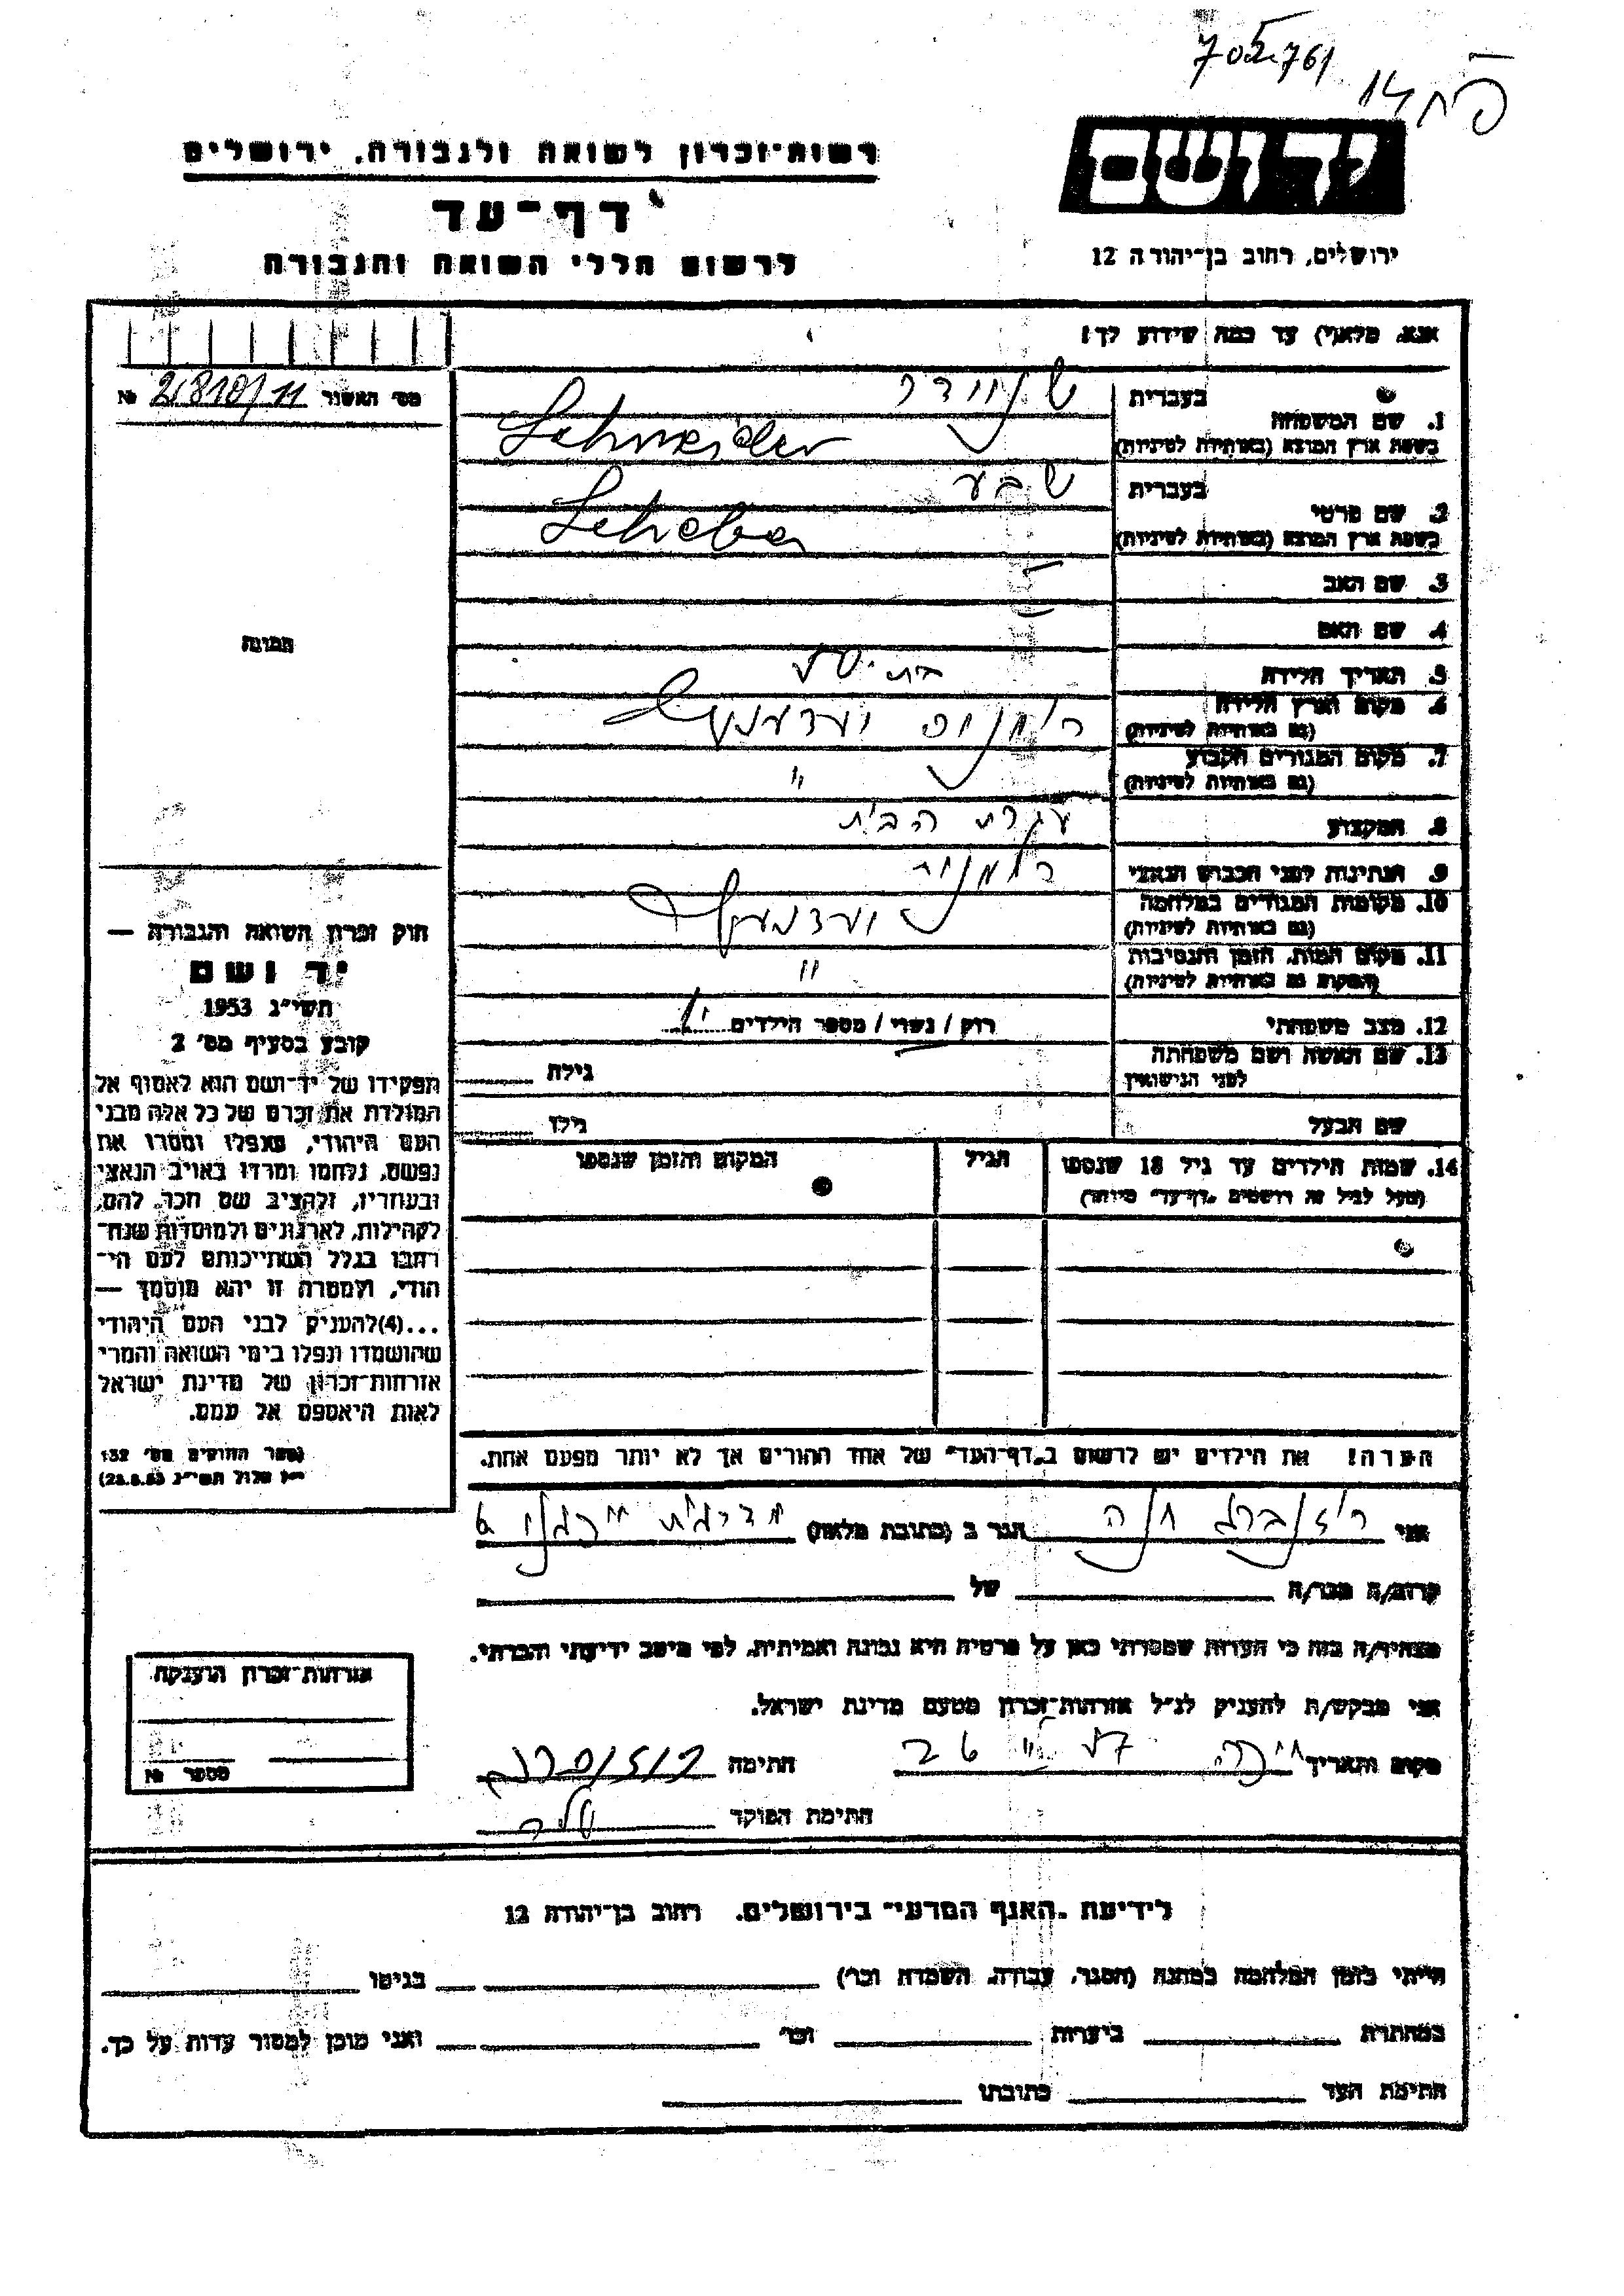 705761
יד ושם
רשות־זכרון לשואה ולגבורה, ירושלים
דף־עד
לרשום חללי השואה והגבורה
ירושלים, רחוב בן־יהודה 12
אנא, מלא(י) עד כמה שידוע לך!
מס׳ האשור 21810/11 №
1. שם המשפחה
בעברית שניידר
בשפת ארץ המוצא (באותיות לטיניות) Schneider
2. שם פרטי
בעברית שבע
בשפת ארץ המוצא (באותיות לטיניות) Scheba
3. שם האב
4. שם האם
5. תאריך הלידה
6. מקום וארץ הלידה
(גם באותיות לטיניות)
7. מקום המגורים הקבוע
(גם באותיות לטיניות) "
8. המקצוע עקרת הבית
9. הנתינות לפני הכבוש הנאצי
10. מקומות המגורים במלחמה
(גם באותיות לטיניות)
11. מקום המות, הזמן והנסיבות
(המקום גם באותיות לטיניות) "
12. מצב משפחתי רוק / נשוי / מספר הילדים
13. שם האשה ושם משפחתה
לפני הנישואין
גילה
שם הבעל גילו
14. שמות הילדים עד גיל 18 שנספו
(מעל לגיל זה רושמים „דף־עד״ מיוחד)
הגיל
המקום והזמן שנספו
הערה! את הילדים יש לרשום ב„דף־העד״ של אחד ההורים אך לא יותר מפעם אחת.
התמונה
חוק זכרון השואה והגבורה —
יד ושם
תשי״ג 1953
קובע בסעיף מס׳ 2
תפקידו של יד־ושם הוא לאסוף אל
המולדת את זכרם של כל אלה מבני
העם היהודי, שנפלו ומסרו את
נפשם, נלחמו ומרדו באויב הנאצי
ובעוזריו, ולהציב שם וזכר להם,
לקהילות, לארגונים ולמוסדות שנח־
רבו בגלל השתייכותם לעם הי־
הודי, ולמטרה זו יהא מוסמך —
...(4)להעניק לבני העם היהודי
שהושמדו ונפלו בימי השואה והמרי
אזרחות־זכרון של מדינת ישראל
לאות היאספם אל עמם.
(ספר החוקים מס׳ 132
י״ז אלול תשי״ג 28.8.53)
אני רוזנברג חנה הגר ב (כתובת מלאה)
קרוב/ה מכר/ה של
מצהיר/ה בזה כי העדות שמסרתי כאן על פרטיה היא נכונה ואמיתית, לפי מיטב ידיעתי והכרתי.
אני מבקש/ת להעניק לנ״ל אזרחות־זכרון מטעם מדינת ישראל.
מקום ותאריך חתימה
חתימת הפוקד
אזרחות־זכרון הוענקה
מספר №
לידיעת „האגף המדעי״ בירושלים, רחוב בן־יהודה 12
הייתי בזמן המלחמה במחנה (הסגר, עבודה, השמדה וכו׳) בגיטו
במחתרת ביערות וכו׳ ואני מוכן למסור עדות על כך.
חתימת העד כתובתו